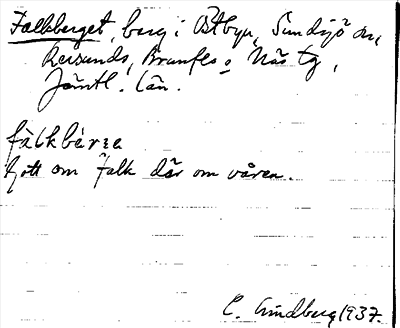 Falkberget, berg i Östbyn, Sundsjö sn,
Revsunds, Brunflo o Näs tg,
Jämtl. län.
fàlkbérɜe
Gott om falk där om våren.
C. Lindberg 1937.